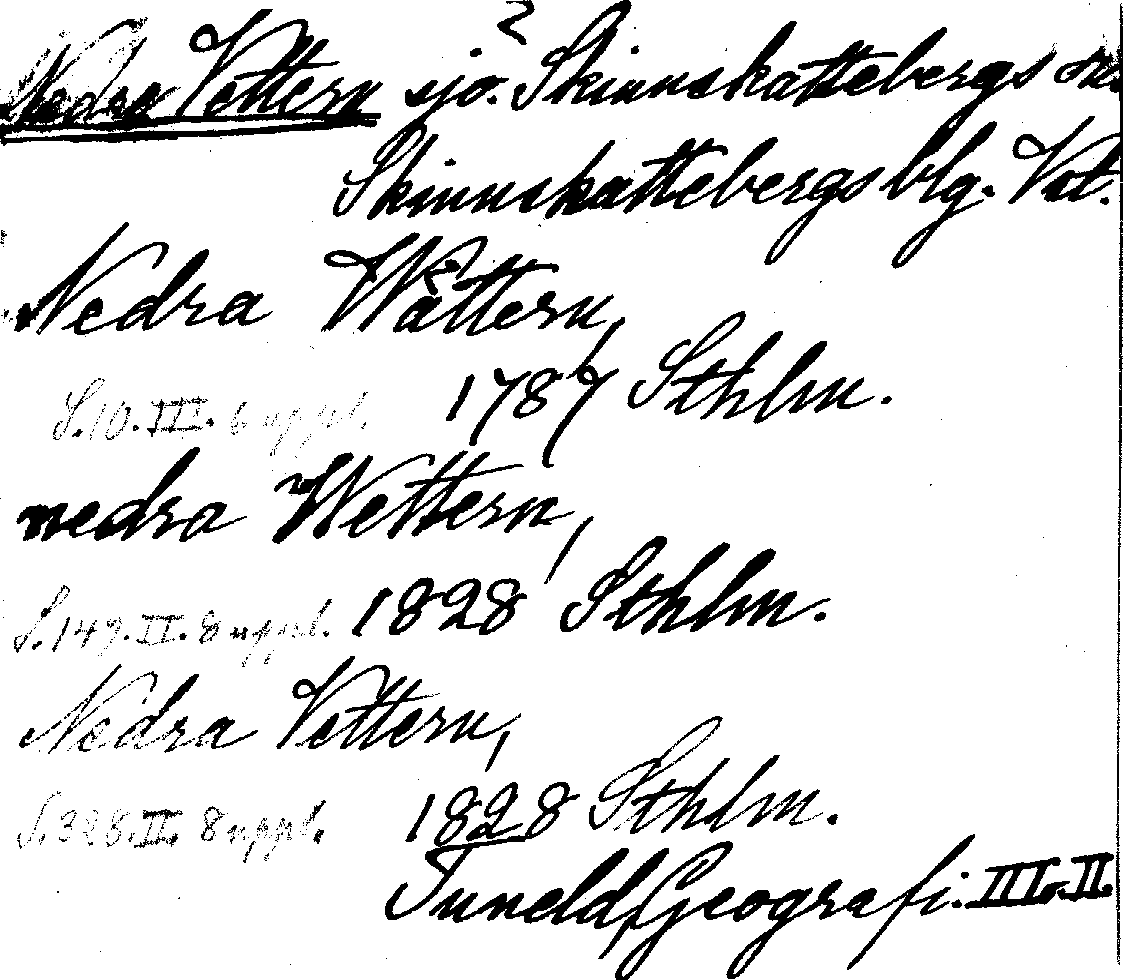 2
Nedra Vettern sjö. Skinnskattebergs sn.
Skinnskattebergs blg. Vstm.
Nedra Wättern,
S.10.III. 6 uppl. 1787 Sthlm.
nedra Wettern,
S.149.II. 8 uppl. 1828 Sthlm.
Nedra Vettern,
S.328.II. 8 uppl. 1828 Sthlm.
Tuneld, Geografi. III. II.